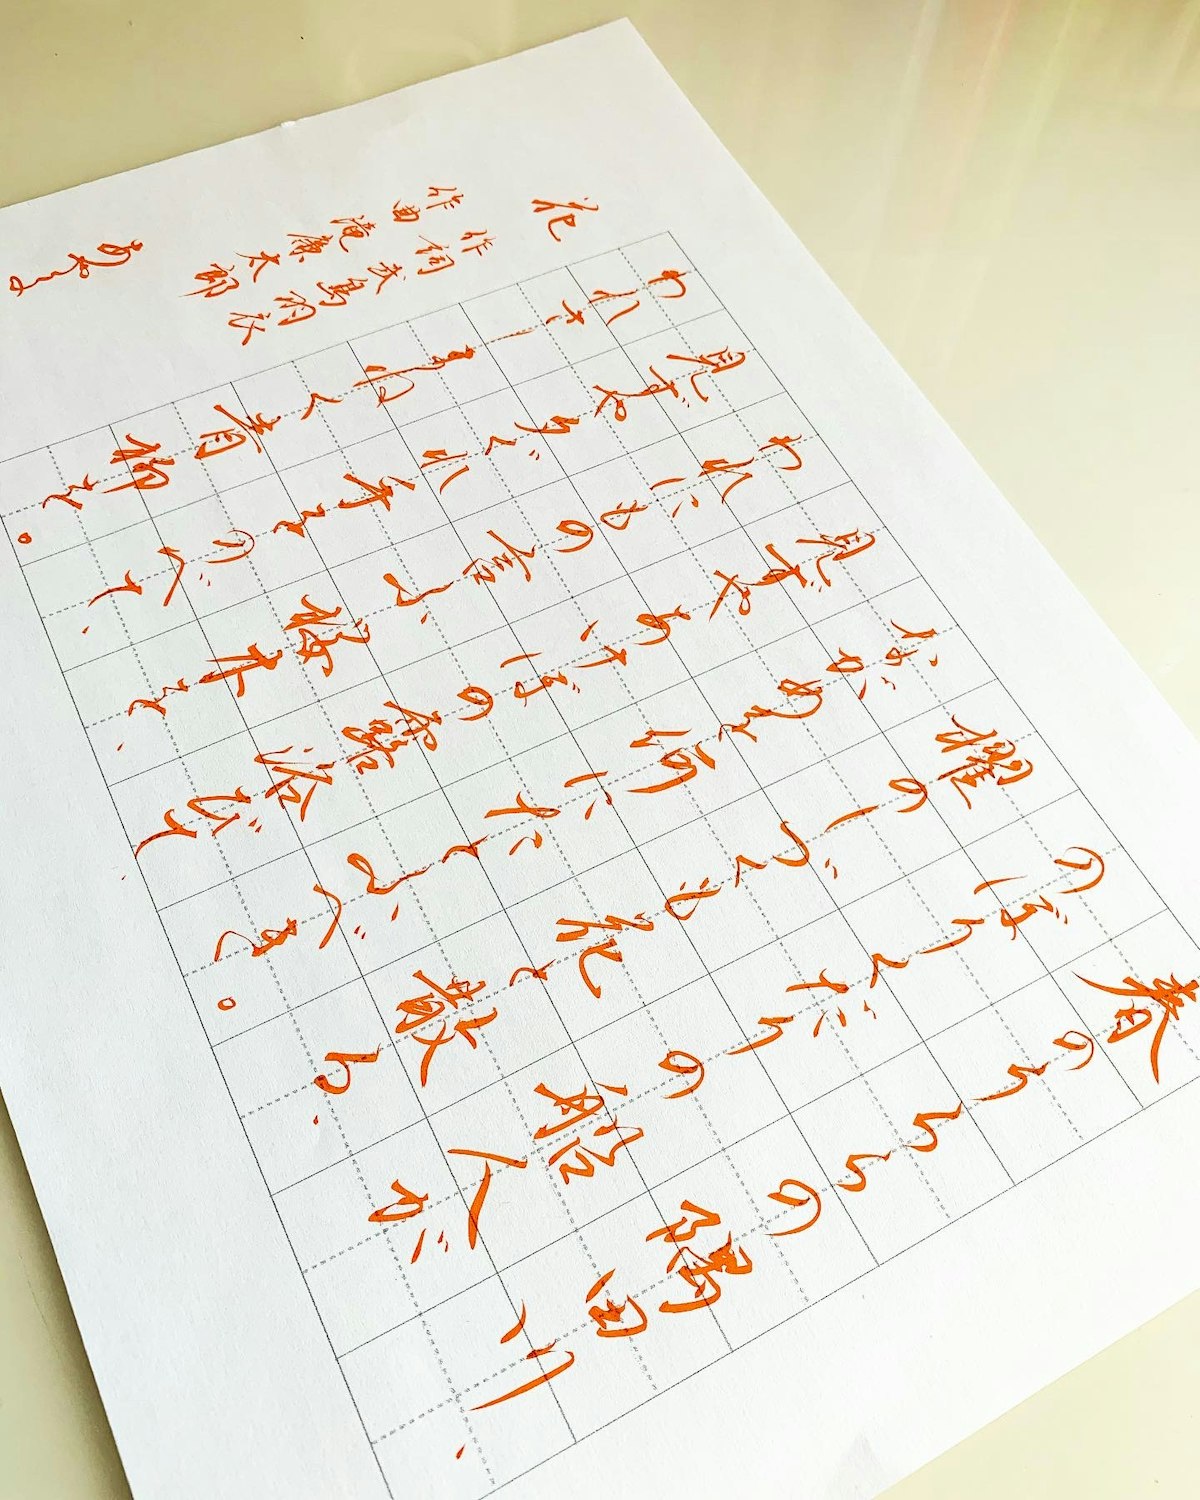 春のうららの隅田川、
のぼりくだりの船人が
櫂のしづくも花と散る、
ながめを何にたとふべき。
見ずやあけぼの露浴びて、
われにもの言ふ桜木を、
見ずや夕ぐれ手をのべて、
われさしまねく青柳を。
花
作詞 武島羽衣
作曲 滝廉太郎